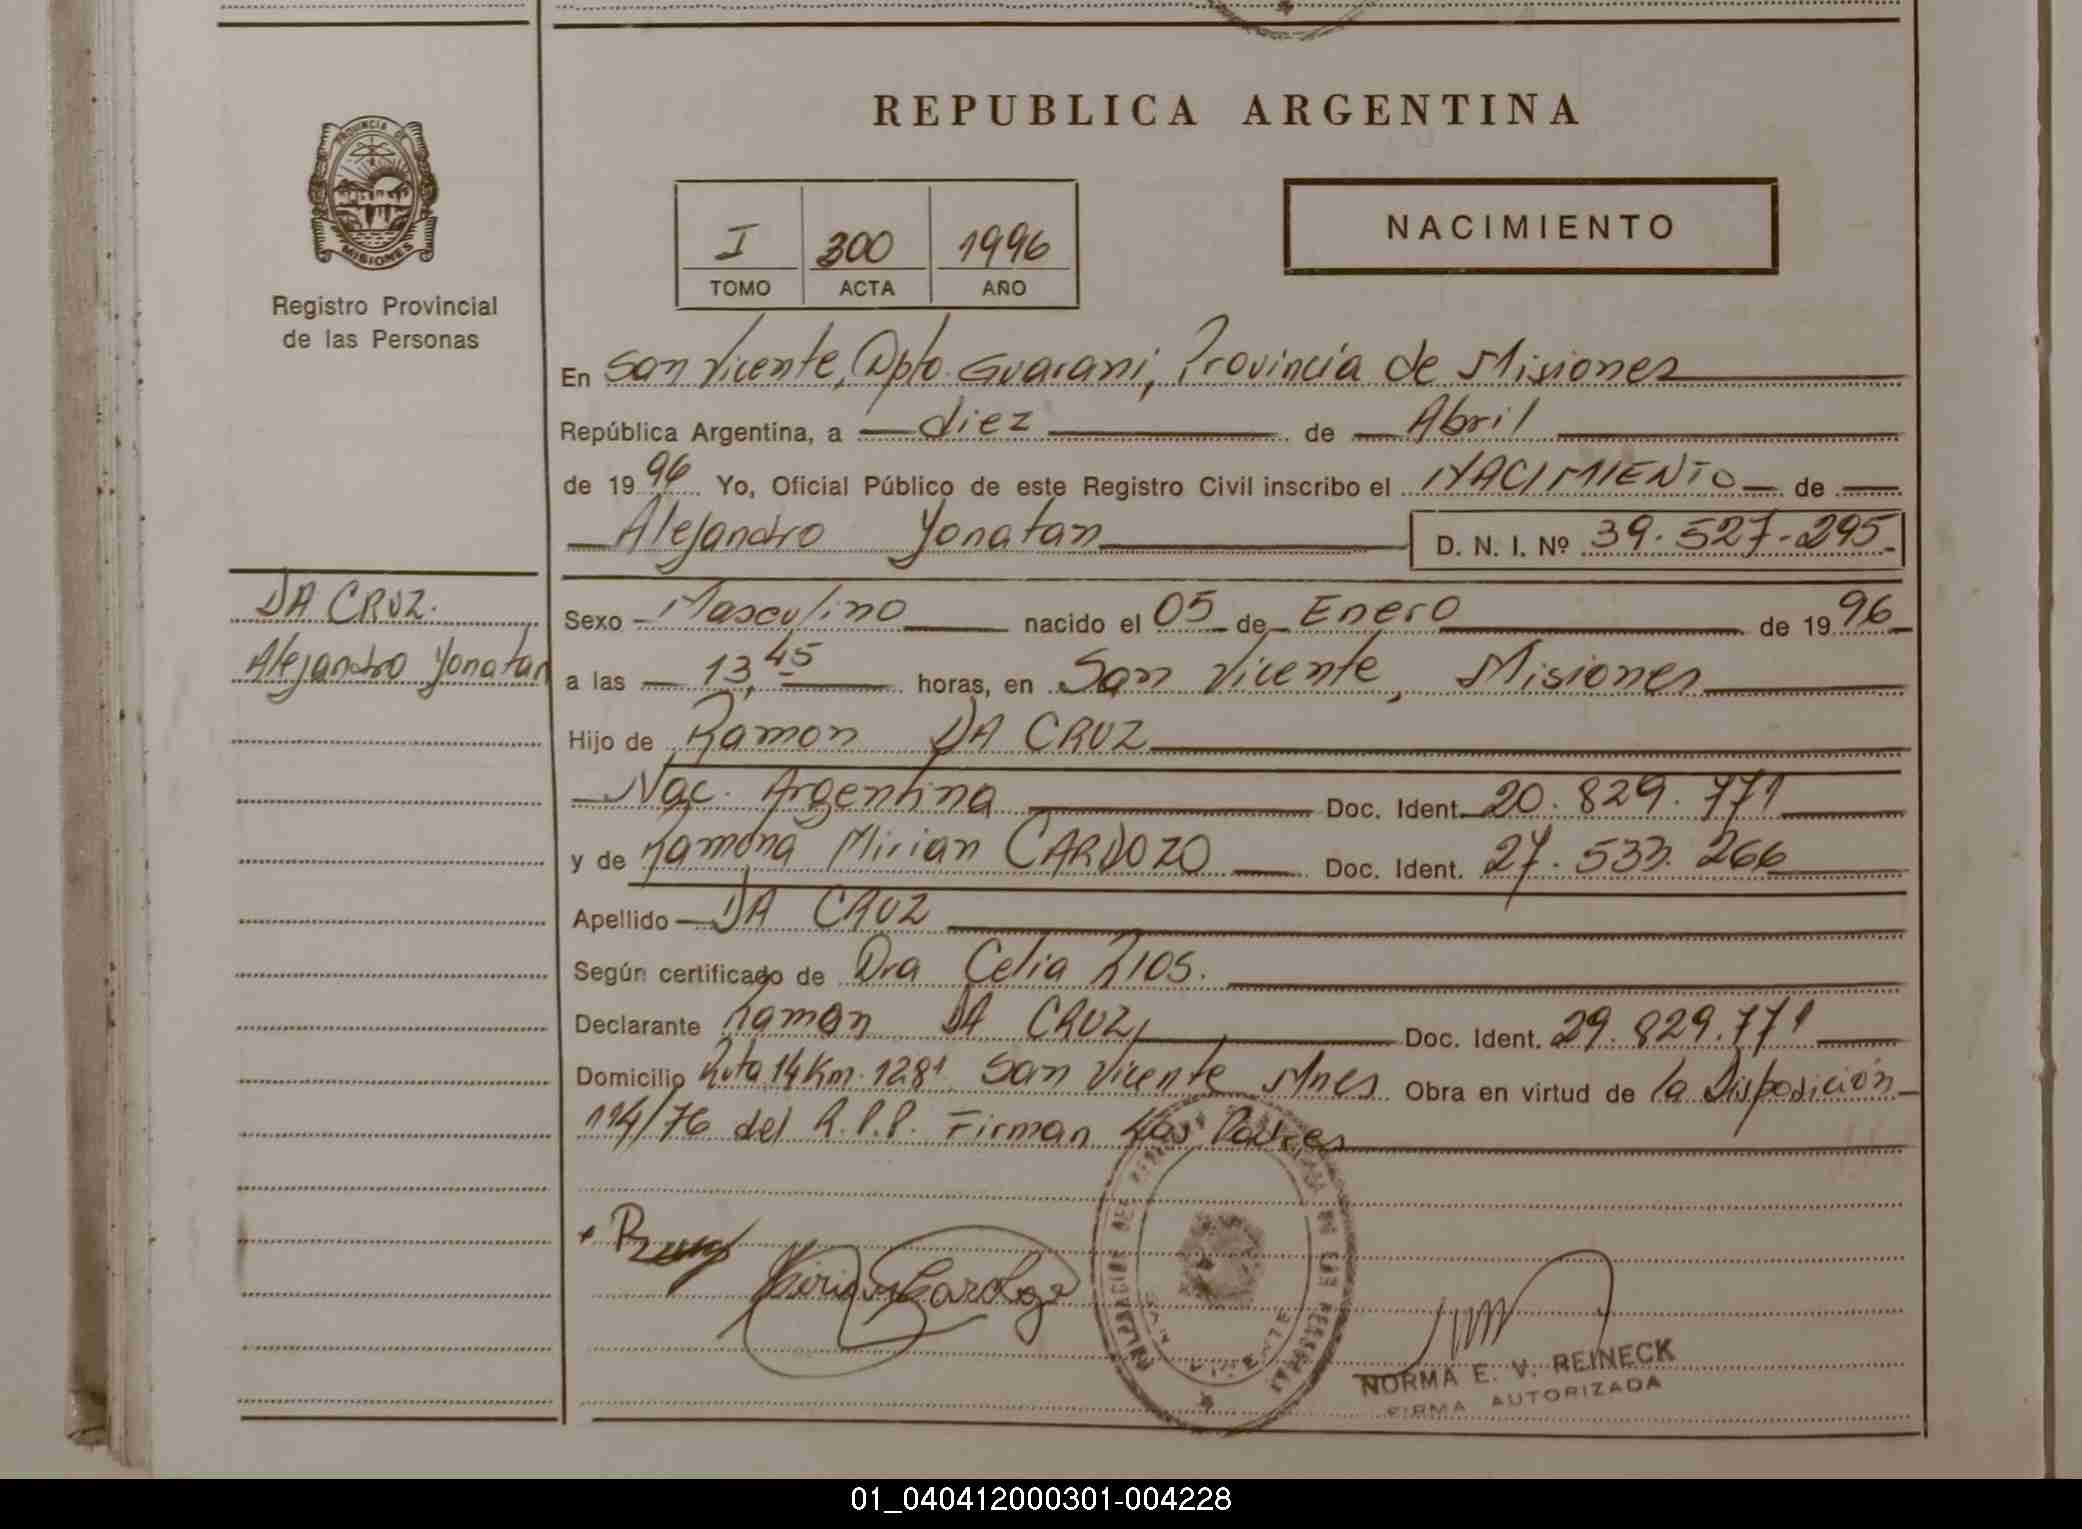 REPUBLICA ARGENTINA
PROVINCIA DE
MISIONES
Registro Provincial
de las Personas
I 300 1996
TOMO ACTA AÑO
NACIMIENTO
En San Vicente, Dpto. Guarani, Provincia de Misiones
República Argentina, a diez de Abril
de 1996 Yo, Oficial Público de este Registro Civil inscribo el NACIMIENTO de
Alejandro Yonatan D. N. I. Nº 39.527.295
DA CRUZ.
Alejandro Yonatan
Sexo Masculino nacido el 05 de Enero de 1996
a las 13,45 horas, en San Vicente, Misiones
Hijo de Ramon DA CRUZ
Nac. Argentina Doc. Ident. 20.829.771
y de Ramona Mirian CARDOZO Doc. Ident. 27.533.266
Apellido DA CRUZ
Según certificado de Dra Celia RIOS.
Declarante Ramon DA CRUZ, Doc. Ident. 29.829.771
Domicilio Ruta 14 Km. 1281 San Vicente Mnes. Obra en virtud de la Disposición
114/76 del R.P.P. Firman Los Padres
VICENTE
NORMA E. V. REINECK
FIRMA AUTORIZADA
01_040412000301-004228